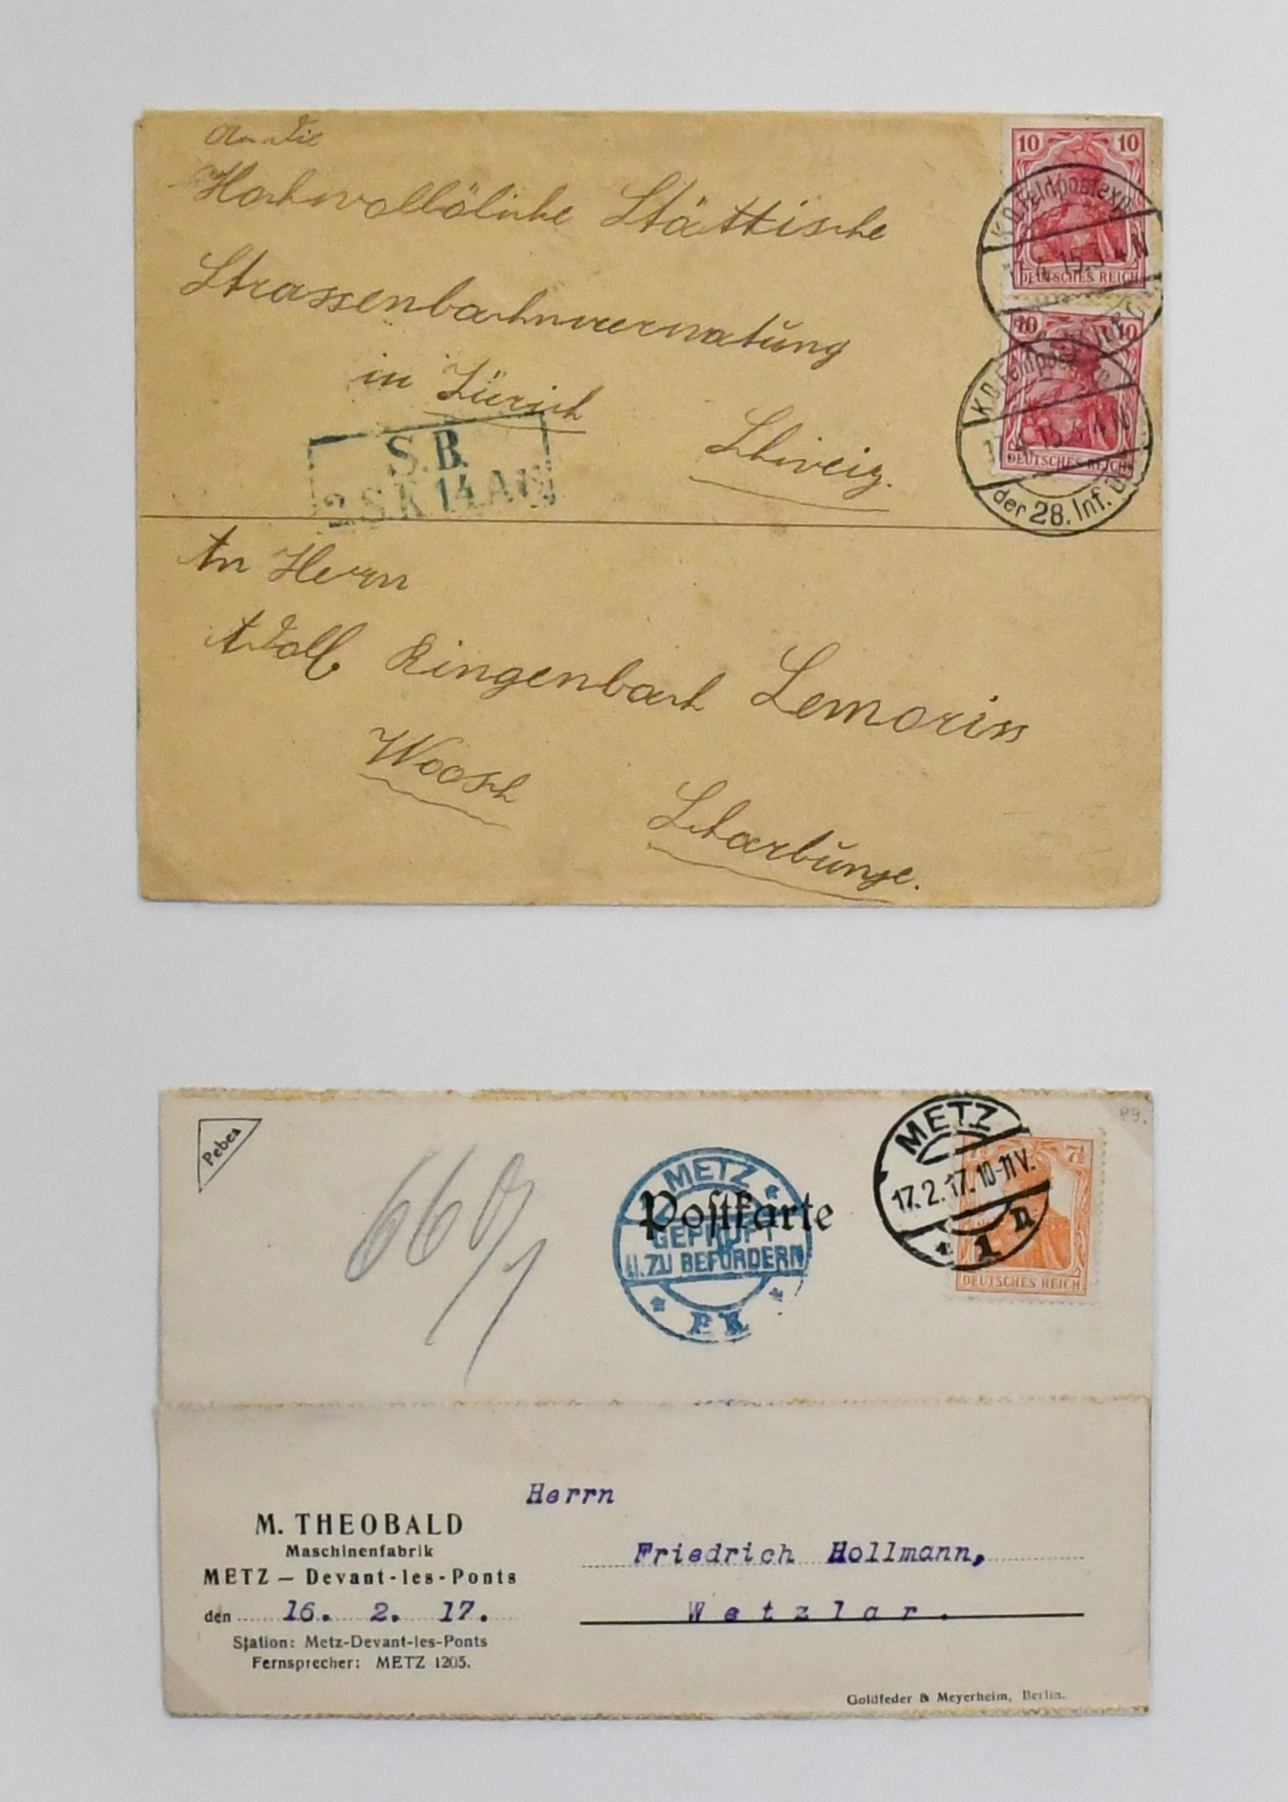 An die
Hochwollöliche Stättische
Strassenbahnverwatung
in Zürich
Schweiz.
S.B.
2 S K 14.A
An Herrn
Adolf Ringenbach Lemoriss
Woosch
Scharbunge.
10 10
DEUTSCHES REICH
K.D. Feldpostexp.
17.4.15. 3-4 N
10 10
DEUTSCHES REICH
K.D. Feldpostexp.
17.4.15. 3-4 N
der 28. Inf.
Pebea
660/1
METZ
GEPRÜFT
U. ZU BEFÖRDERN
P.K.
Postkarte
METZ
17.2.17. 10-11 V.
* 1 n
7½
DEUTSCHES REICH
89.
M. THEOBALD
Maschinenfabrik
METZ – Devant-les-Ponts
den 16. 2. 17.
Station: Metz-Devant-les-Ponts
Fernsprecher: METZ 1205.
Herrn
Friedrich Hollmann,
Wetzlar.
Goldfeder & Meyerheim, Berlin.